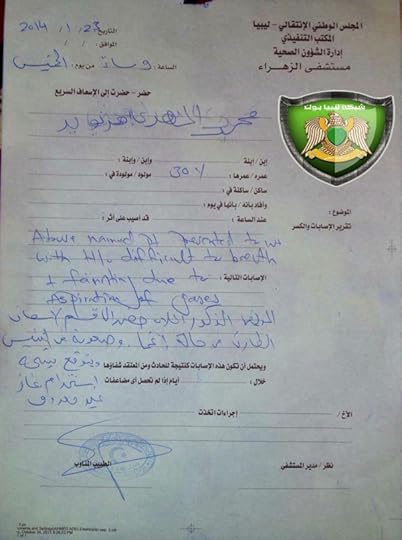 المجلس الوطني الإنتقالي - ليبيا
المكتب التنفيذي
إدارة الشؤون الصحية
مستشفى الزهراء
التاريخ 23/1/2014
الموافق
الساعة : من يوم : الخميس
حضر - حضرت إلى الإسعاف السريع
شبكة ليبيا يوك
إبن / إبنة وإبن / وإبنة :
عمره / عمرها : 30 y مولود / مولودة في :
ساكن / ساكنة في :
وأفاد بأنه / بأنها في يوم :
عند الساعة : قد أصيب على أثر :
الموضوع :
تقرير الإصابات والكسر
Above named pt presented to us
with H/o difficult to breath
الإصابات التالية :
+ fainting due to
Aspiration of gases
المريض المذكور اعلاه حضر الى قسم الاسعاف
الطارئ من حالة اغماء وصعوبة في التنفس
ويحتمل أن تكون هذه الإصابات كنتيجة للحادث ومن المعتقد شفاؤها
ويتوقع بسبب
خلال : أيام إذا لم تحصل أى مضاعفات
استخدام غاز
غير معروف
الأخ / إجراءات اتخذت
الطبيب المناوب
نظر / مدير المستشفى